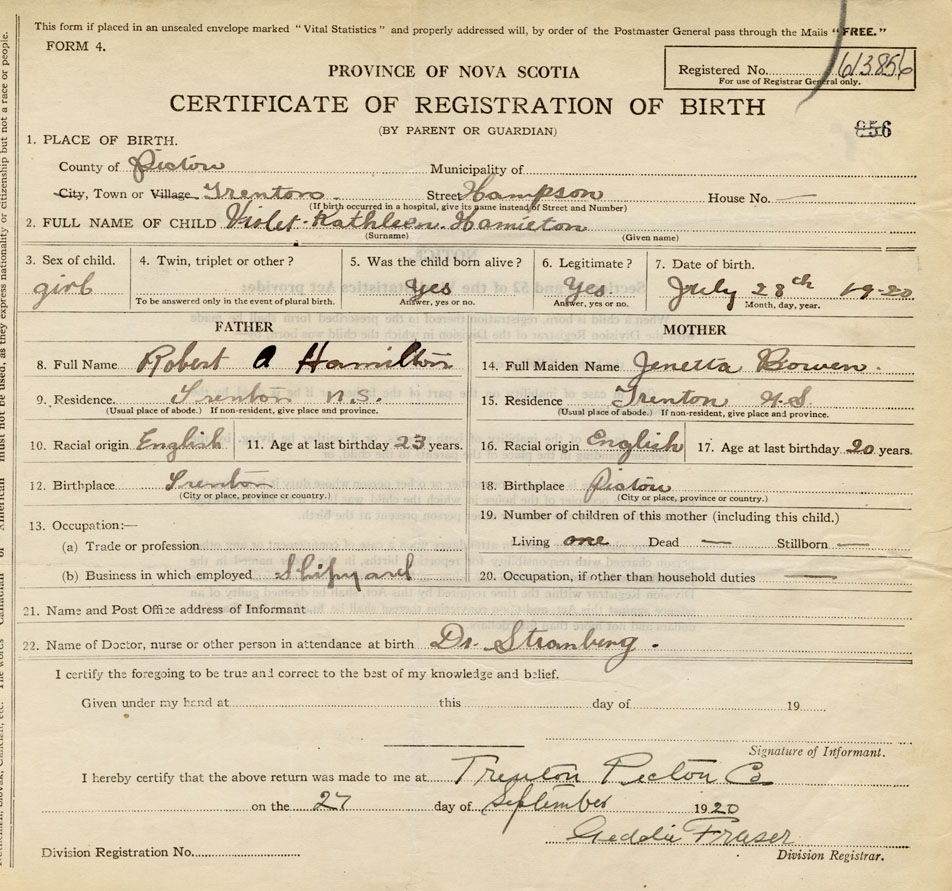 This form if placed in an unsealed envelope marked "Vital Statistics" and properly addressed will, by order of the Postmaster General pass through the Mails "FREE."
FORM 4.
Registered No. 613856
For use of Registrar General only.
PROVINCE OF NOVA SCOTIA
CERTIFICATE OF REGISTRATION OF BIRTH
(BY PARENT OR GUARDIAN)
856
1. PLACE OF BIRTH.
County of Pictou Municipality of
City, Town or Village Trenton. Street Hampson House No. —
(If birth occurred in a hospital, give its name instead of Street and Number)
2. FULL NAME OF CHILD Violet Kathleen Hamilton
(Surname) (Given name)
3. Sex of child. 4. Twin, triplet or other? 5. Was the child born alive? 6. Legitimate? 7. Date of birth.
girl Yes Yes July 28th 19-20
To be answered only in the event of plural birth. Answer, yes or no. Answer, yes or no. Month, day, year.
FATHER MOTHER
8. Full Name Robert A Hamilton 14. Full Maiden Name Jenetta Bowen.
9. Residence. Trenton N.S. 15. Residence Trenton N.S.
(Usual place of abode.) If non-resident, give place and province. (Usual place of abode.) If non-resident, give place and province.
10. Racial origin English 11. Age at last birthday 23 years. 16. Racial origin English 17. Age at last birthday 20 years.
12. Birthplace Trenton 18. Birthplace Pictou
(City or place, province or country.) (City or place, province or country.)
13. Occupation:— 19. Number of children of this mother (including this child.)
(a) Trade or profession Living one Dead — Stillborn —
(b) Business in which employed Shipyard 20. Occupation, if other than household duties —
21. Name and Post Office address of Informant
22. Name of Doctor, nurse or other person in attendance at birth Dr. Stramberg.
I certify the foregoing to be true and correct to the best of my knowledge and belief.
Given under my hand at this day of 19
Signature of Informant.
I hereby certify that the above return was made to me at Trenton Pictou Co
on the 27 day of September 1920
Geddie Fraser
Division Registration No. Division Registrar.